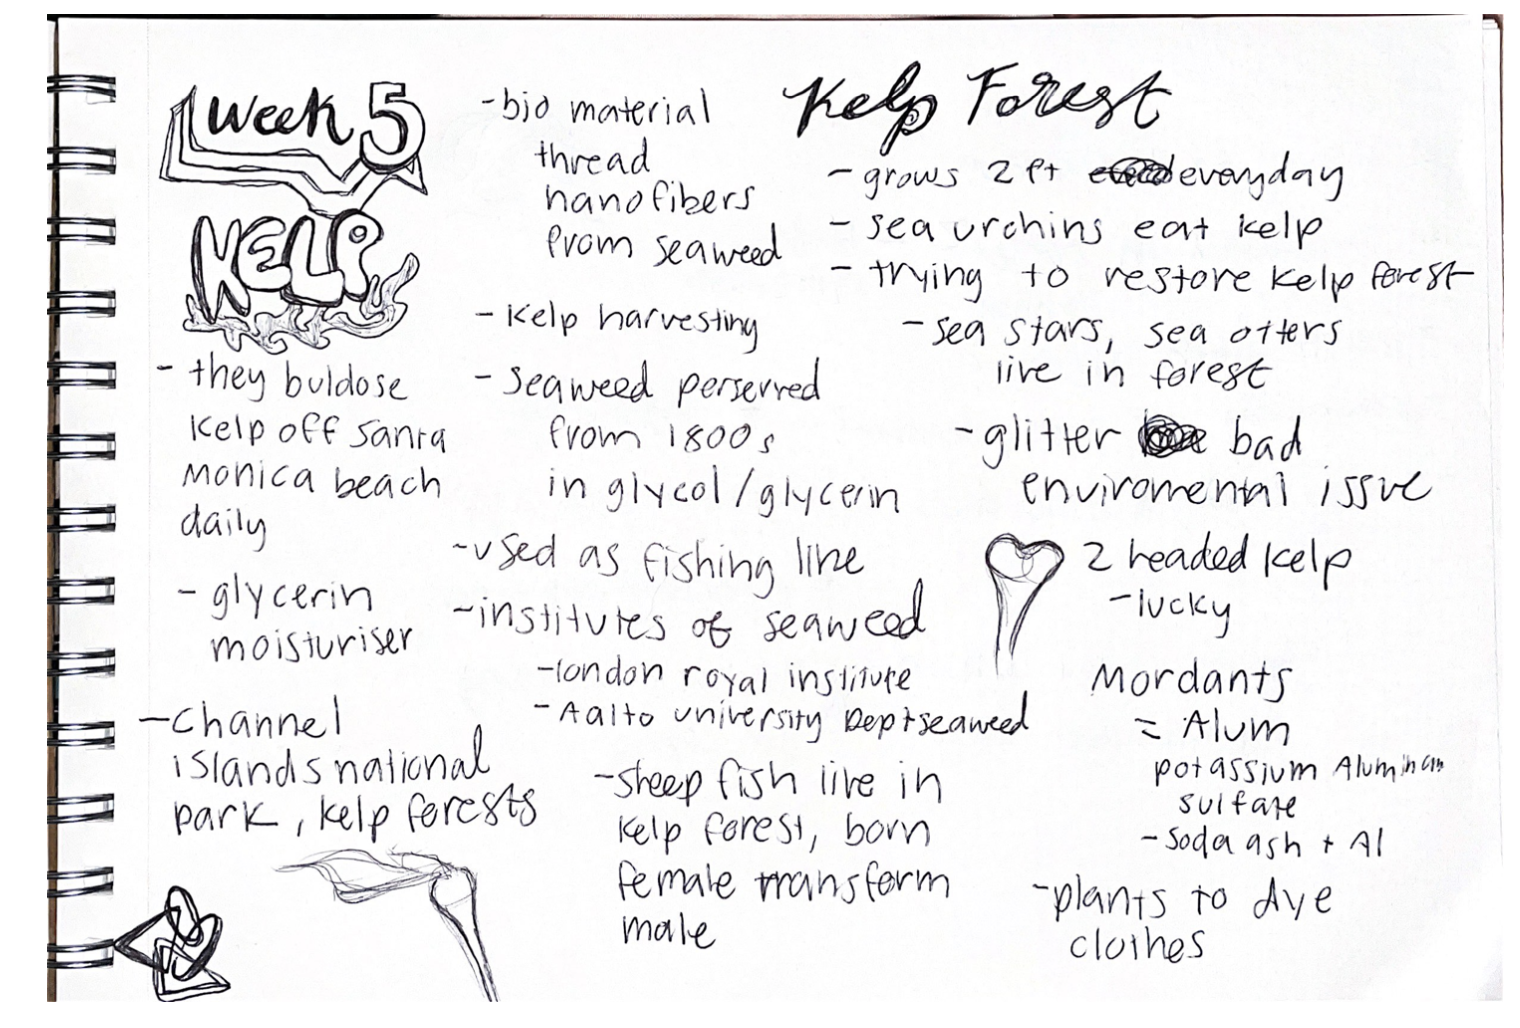 Week 5
KELP
- they buldose
kelp off santa
monica beach
daily
- glycerin
moisturiser
- Channel
islands national
park, kelp forests
- bio material
thread
nanofibers
from seaweed
- kelp harvesting
- seaweed perserved
from 1800s
in glycol/glycerin
- used as fishing line
- institutes of seaweed
- london royal institute
- Aalto university Dept seaweed
- sheep fish live in
kelp forest, born
female transform
male
Kelp Forest
- grows 2 ft everyday
- sea urchins eat kelp
- trying to restore kelp forest
- sea stars, sea otters
live in forest
- glitter bad
enviromental issue
2 headed kelp
- lucky
Mordants
= Alum
potassium Aluminum
sulfate
- soda ash + Al
- plants to dye
clothes